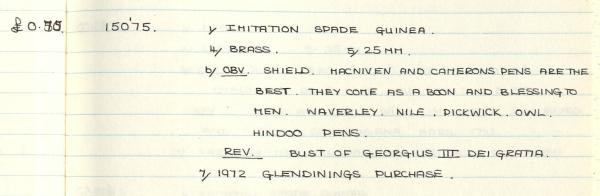 £0.75. 150'75. 1/ IMITATION SPADE GUINEA.
4/ BRASS. 5/ 25 MM.
6/ OBV. SHIELD. MACNIVEN AND CAMERONS PENS ARE THE
BEST. THEY COME AS A BOON AND BLESSING TO
MEN. WAVERLEY. NILE. PICKWICK. OWL.
HINDOO PENS.
REV. BUST OF GEORGIUS III DEI GRATIA.
7/ 1972 GLENDININGS PURCHASE.